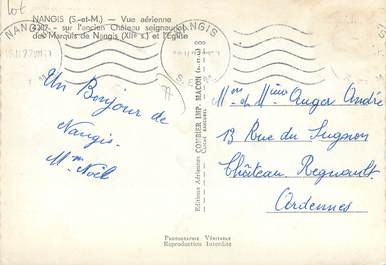 lot
NANGIS (S.-et-M.) — Vue aérienne
sur l'ancien Château seigneurial
des Marquis de Nangis (XIIe s.) et l'Église
NANGIS
NANGIS
Un Bonjour de
Nangis.
Mme Noël
77
Editions Aériennes COMBIER IMP. MACON (S.-et-L.)
Mr et Mme Auger André
13 Rue du Sugnon
Château Regnault
Ardennes
Photographie Véritable
Reproduction Interdite